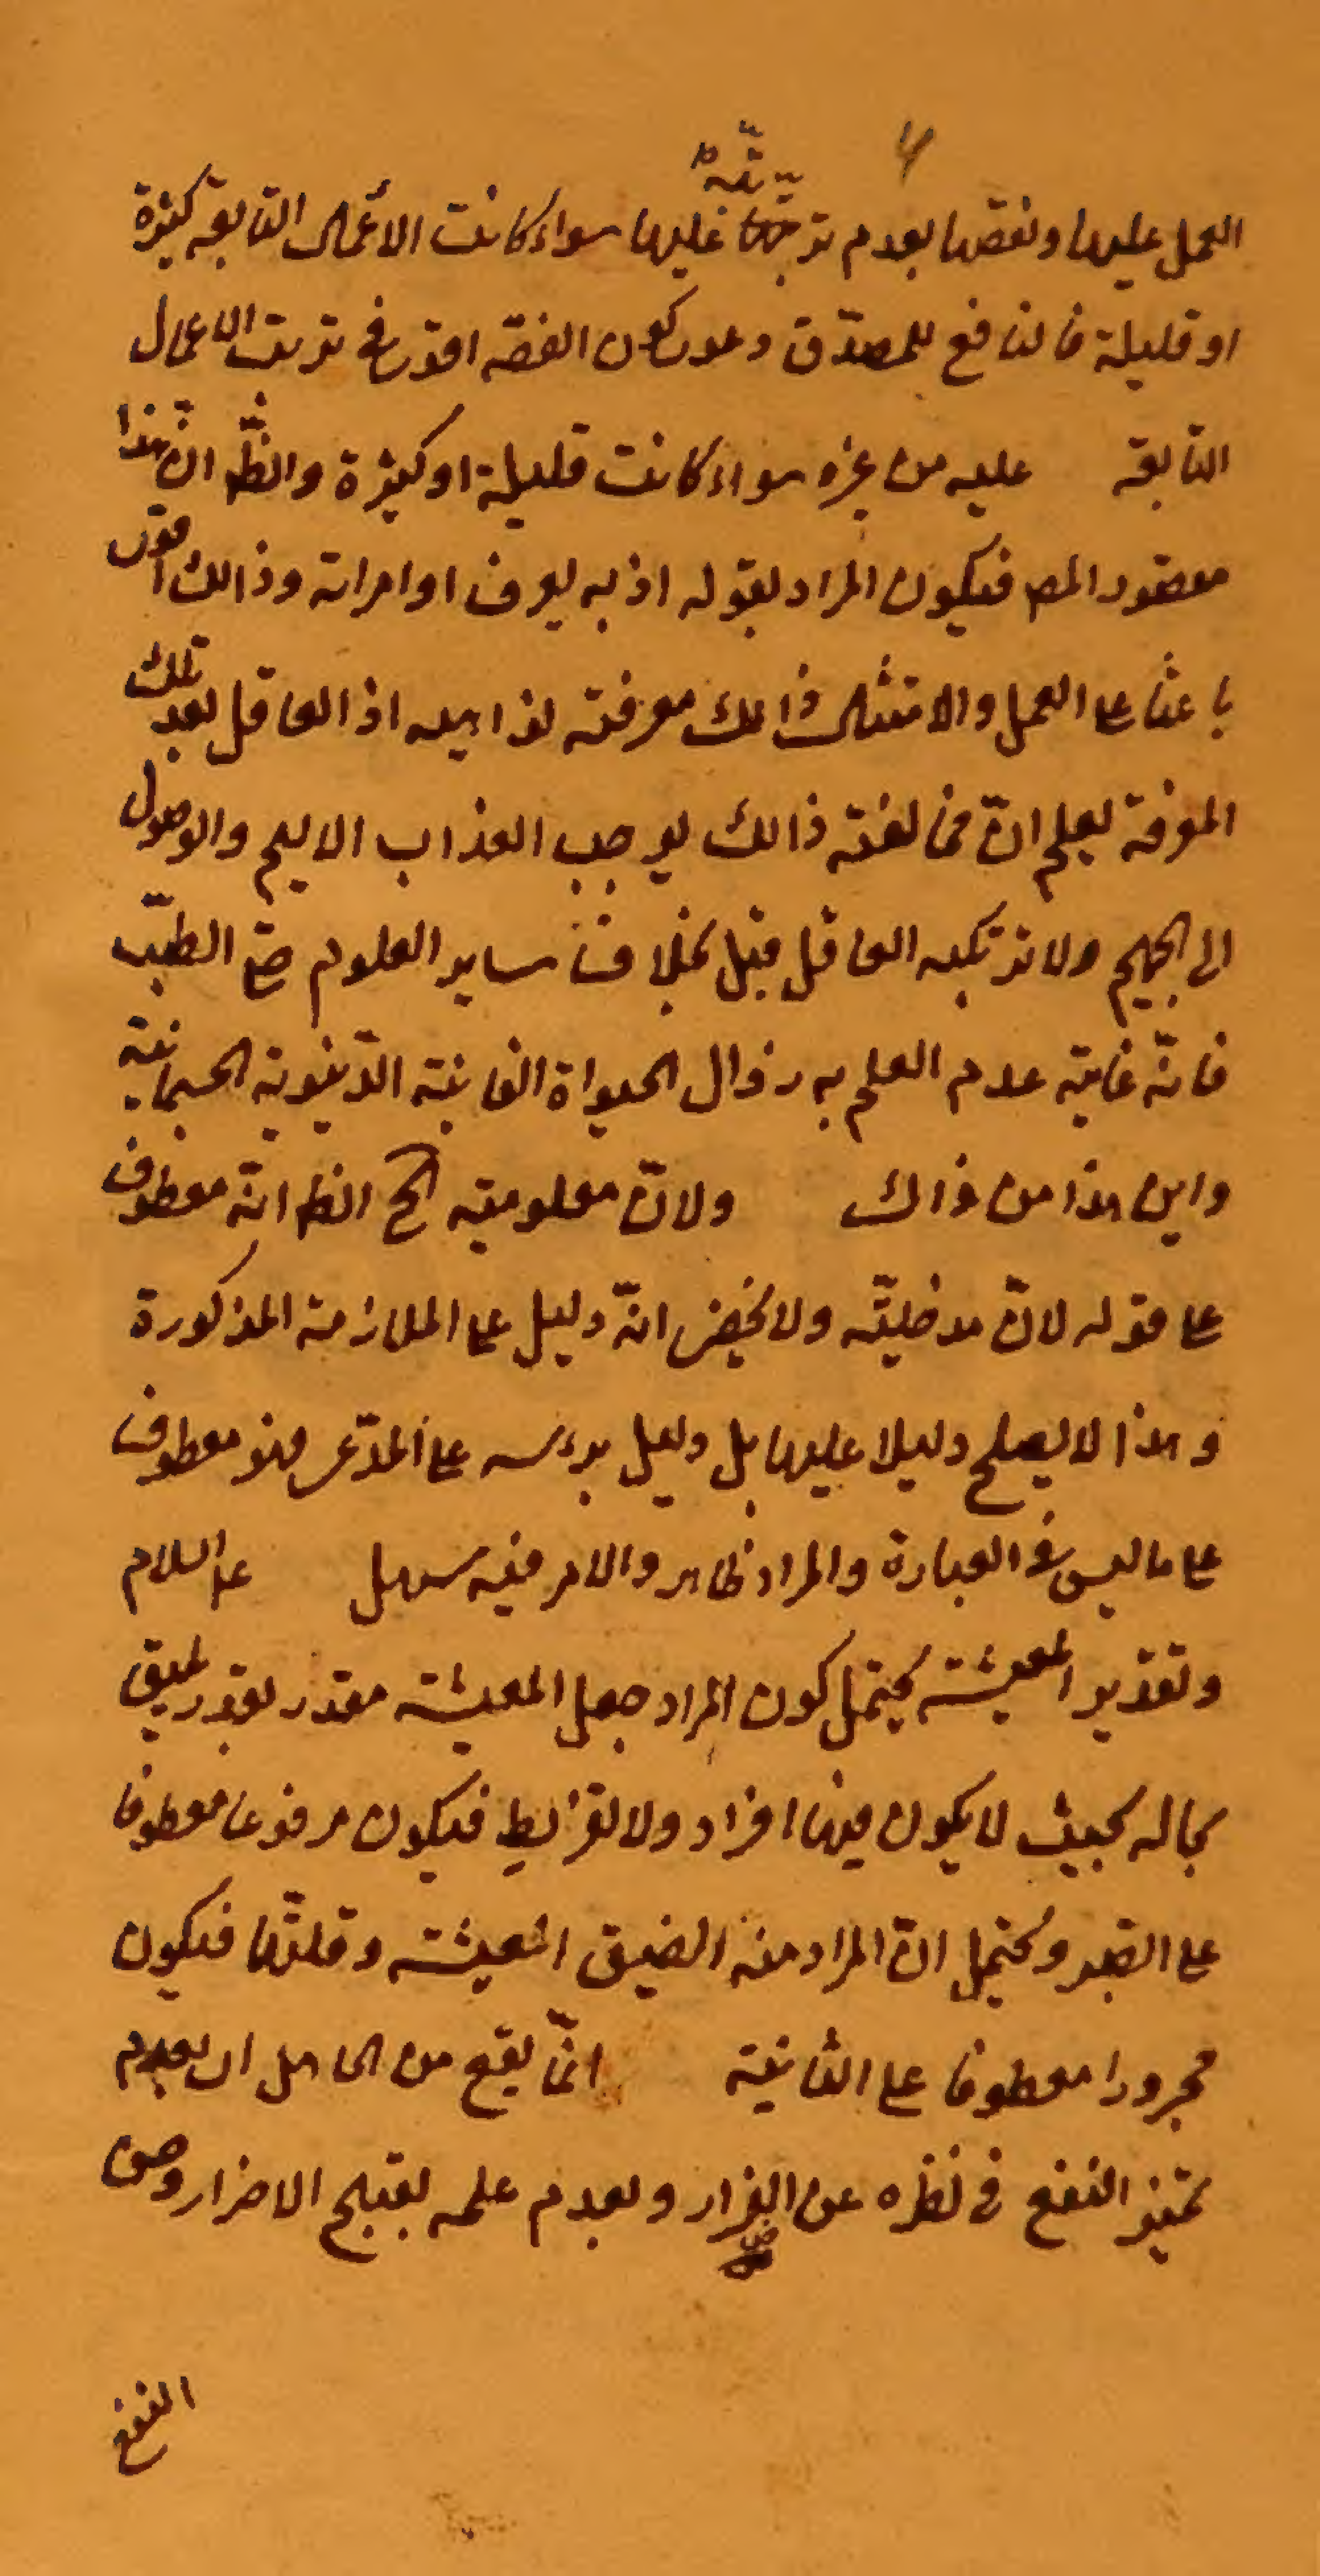 العمل عليها ونقصها بعدم ترتبه عليها سواء كانت الأعمال التابعة كثيرة
او قليلة فالنافع للمصدّق دعوى كون الفقه اقوى في ترتب الاعمال
التابعة عليه من غيره سواء كانت قليلة او كثيرة والظّ ان هذا
مقصود المص فيكون المراد بقوله اذ به يعرف اوامر الله وذالك اقوى
باعثا على العمل والامتثال وذالك معرفته نواهيه اذ العاقل بعد تلك
المعرفة يعلم انّ مخالفته ذالك يوجب العذاب الاليم والوصول
الى الجحيم ولا يرتكبه العاقل قبل بخلاف ساير العلوم حتى الطبّ
فانّه غاية عدم العلم به زوال الحيواة الفانية الدّنيوية الجسمانية
واين هذا من ذاك ولانّ معلوميته الخ الظ انّه معطوف
على قوله لانّ مدخليّته ولا يخفى انّه دليل على الملازمة المذكورة
وهذا لا يصلح دليلا عليها بل دليل برءسه على المدّعى فهو معطوف
على ما ليس في العبارة والمراد ظاهر والامر فيه سهل عليه السلام
وتقدير المعيشة يحتمل كون المراد جعل المعيشة مقدر بقدر يليق
بحاله بحيث لا يكون فيها افراد ولا تفريط فيكون مرفوعا معطوفا
على الصبر ويحتمل انّ المراد منه الضيق المعيشة وقلتّها فيكون
مجرورا معطوفا على النائبة انّما يقع من الجاهل ان لعدم
تميز النفع في نظره عن الضرار ولعدم علمه بقبح الاضرار وحسن
النفع